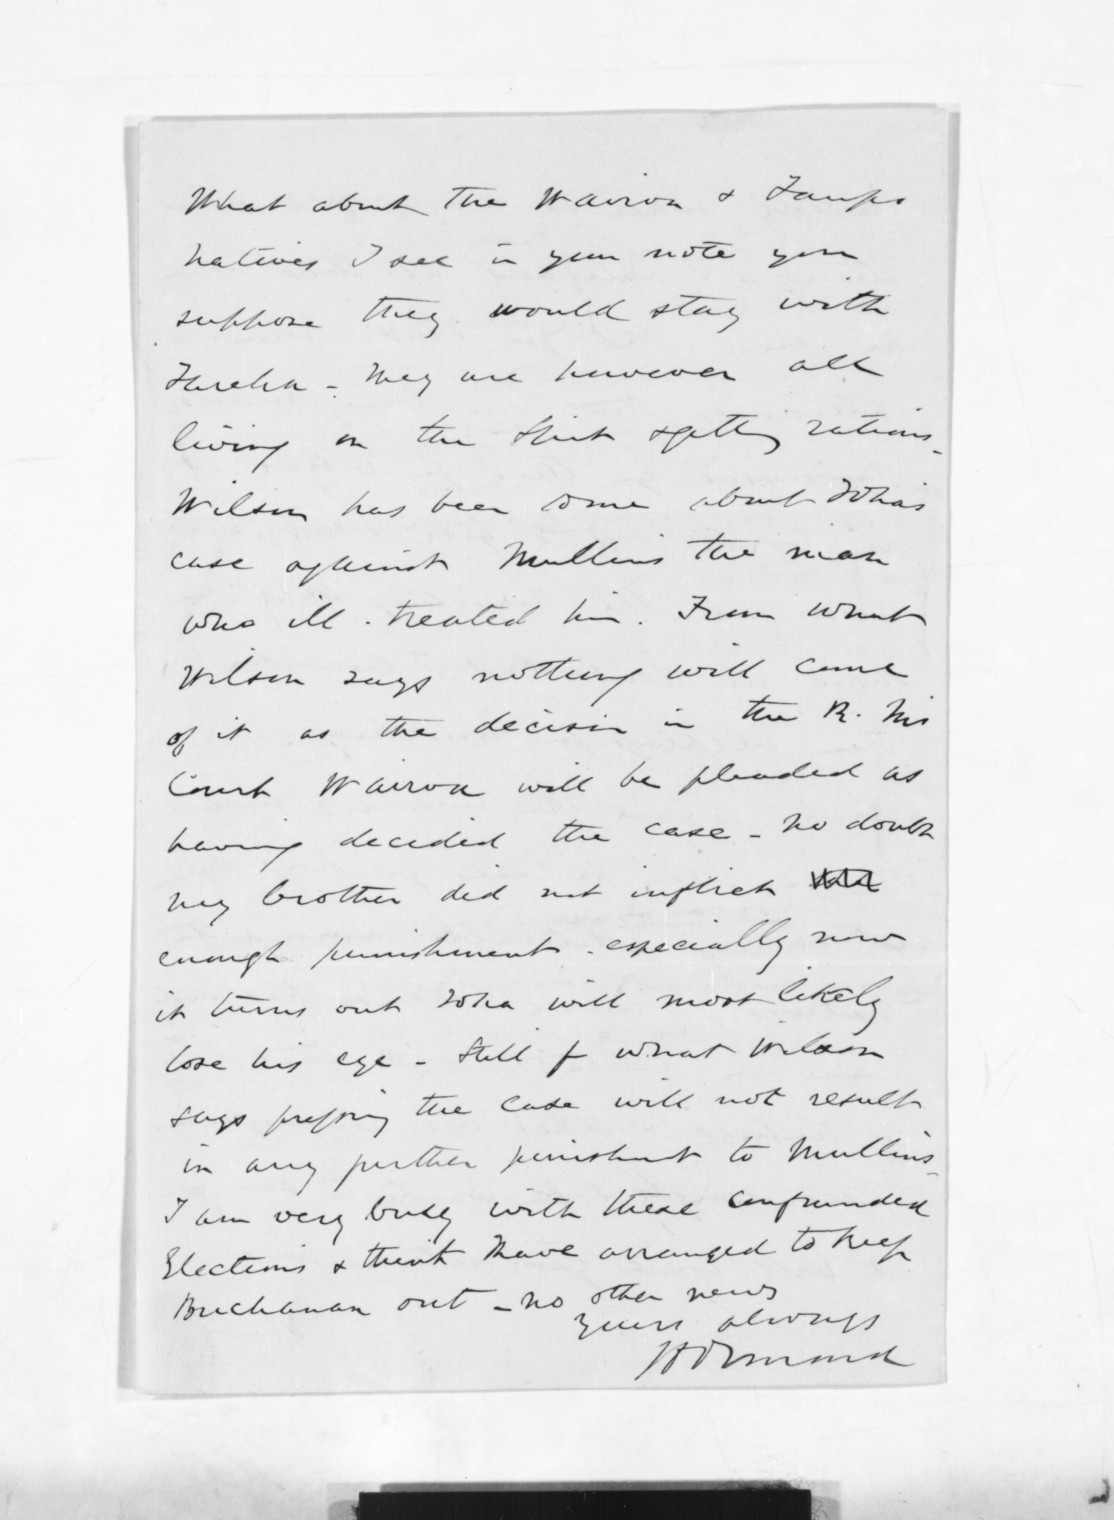 What about the Wairoa & Taupo
natives I see in your note you
suppose they would stay with
Tareha - They are however all
living on the Spit & getting rations -
Wilson has been some about Toha's
case against Mullins the man
who ill-treated him. From what
Wilson says nothing will come
of it as the decision in the R. M's
Court Wairoa will be pleaded as
having decided the case - No doubt
my brother did not inflict
enough punishment - especially now
it turns out Toha will most likely
lose his eye - Still fr what Wilson
says pressing the case will not result
in any further punishment to Mullins -
I am very busy with these confounded
Elections & think I have arranged to keep
Buchanan out - no other news
Yours always
J D Ormond